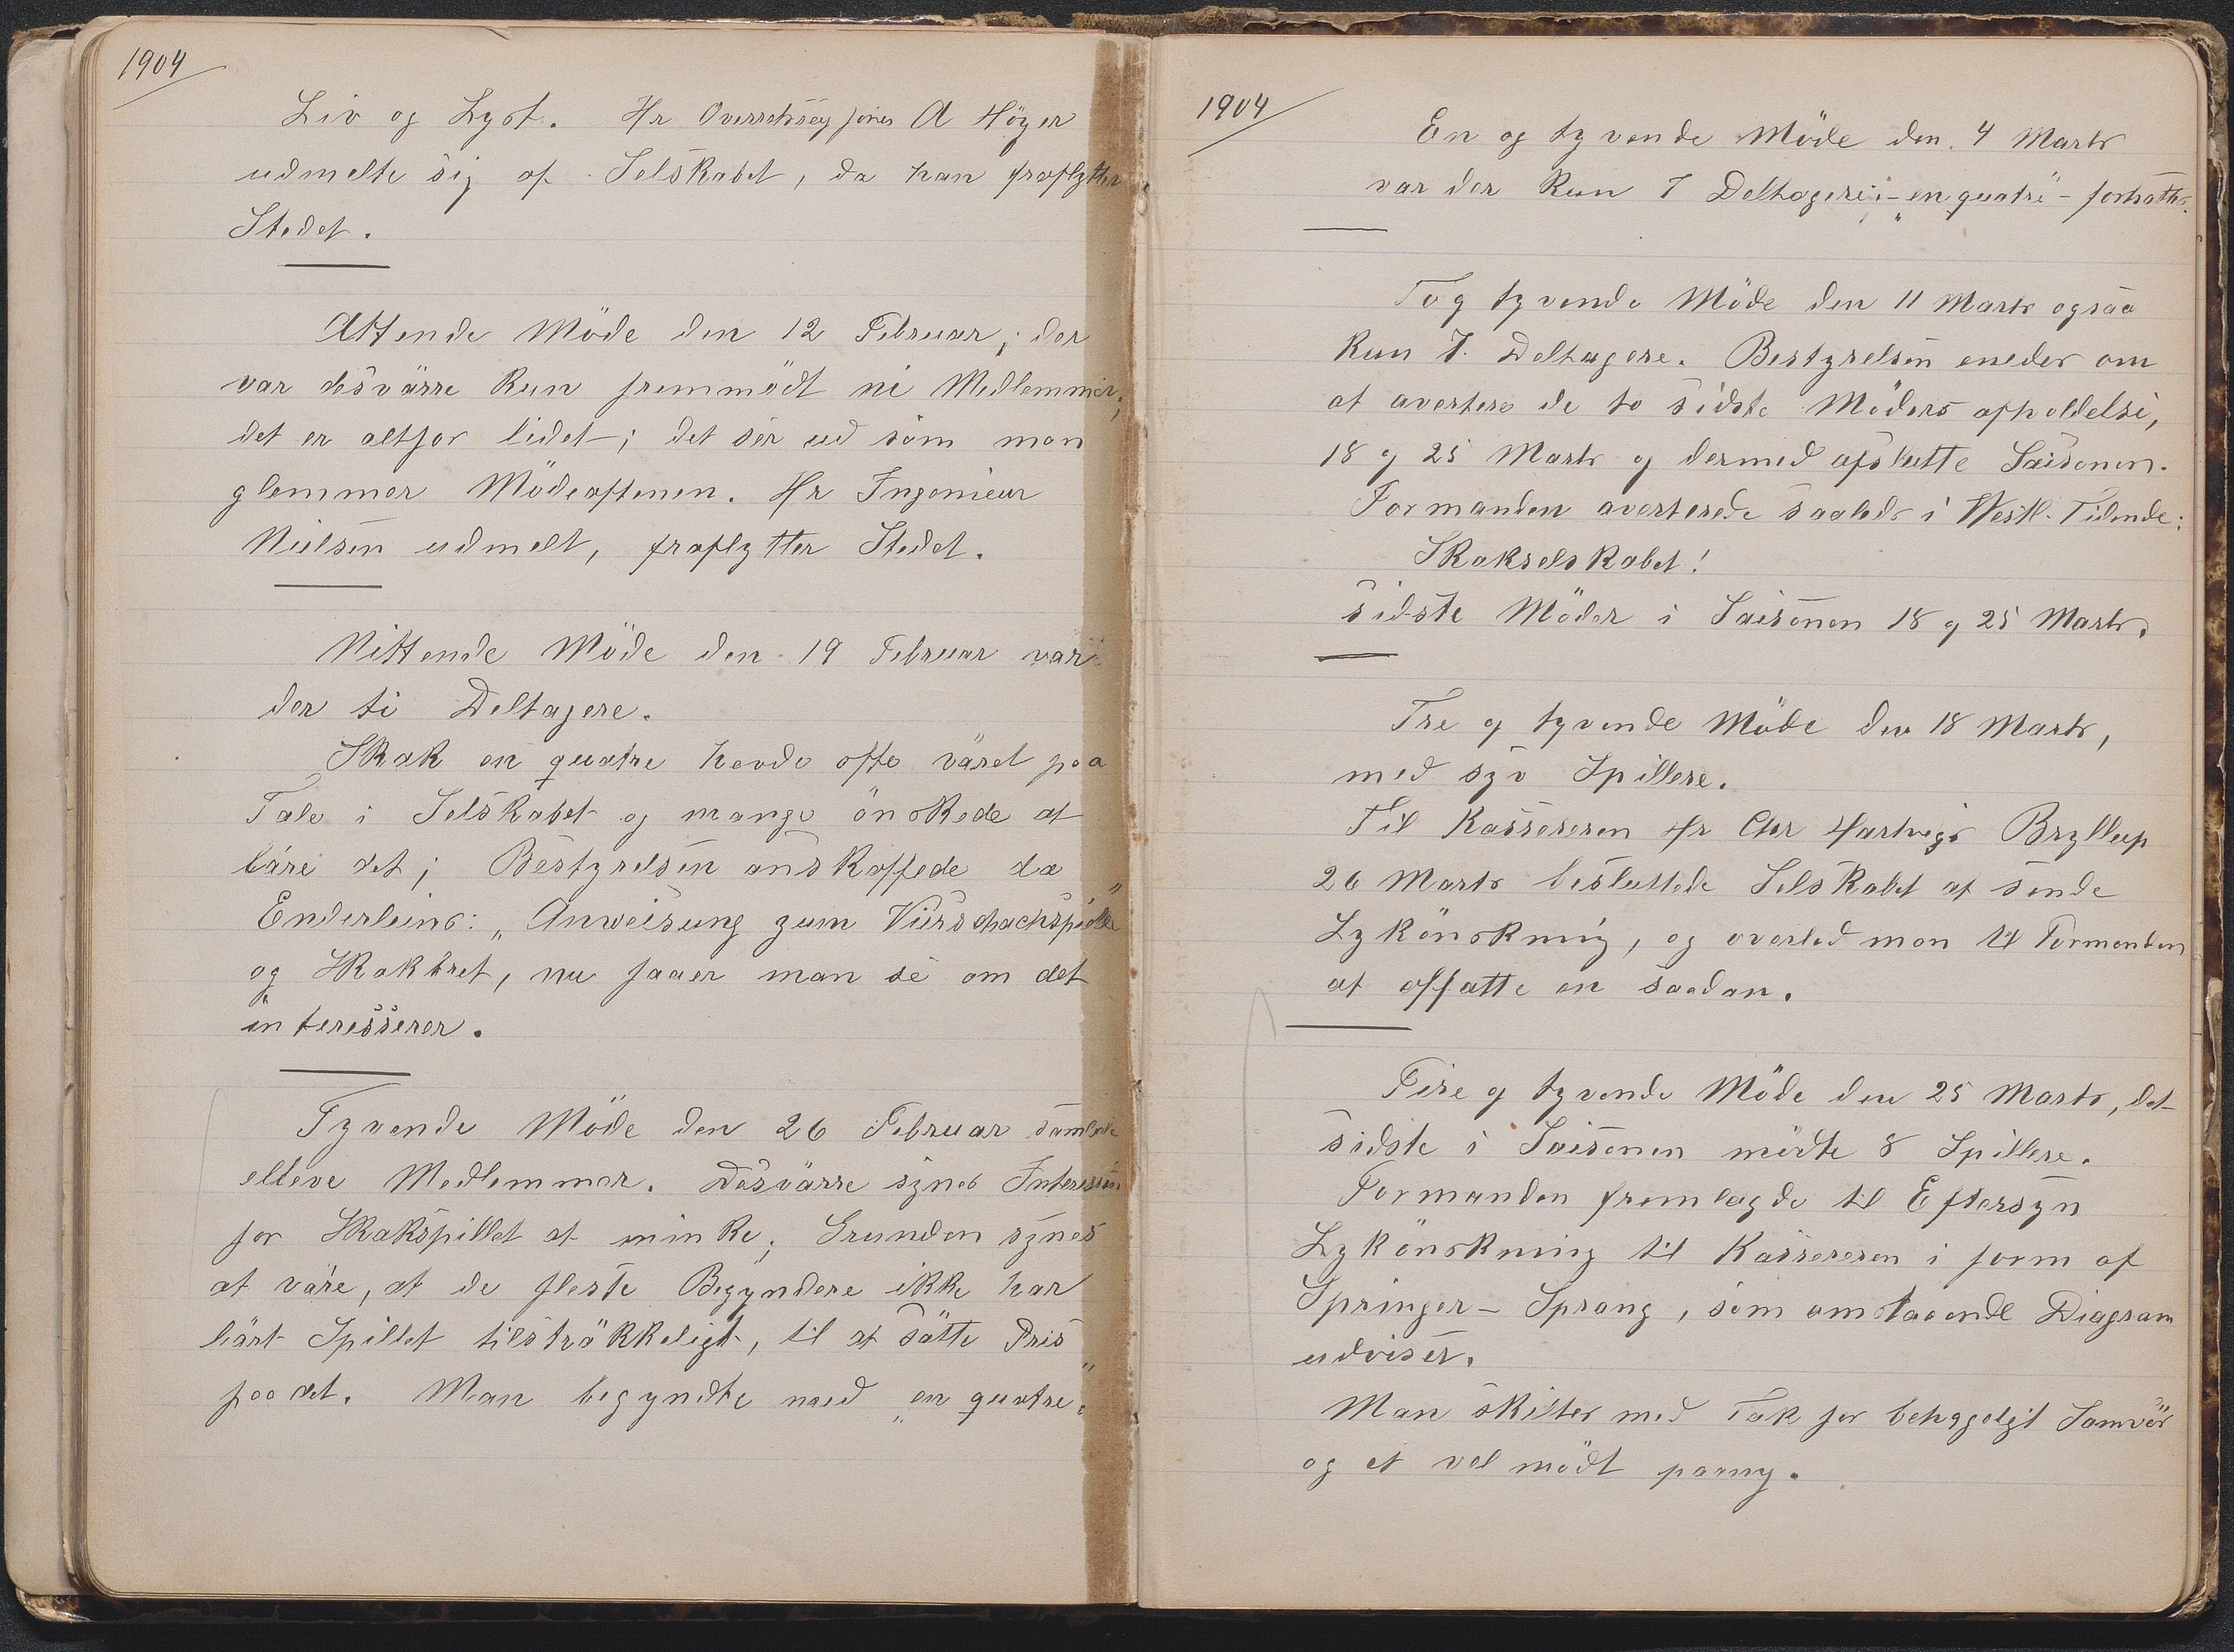 1904
Liv og Lyst. Hr A Höyer
udmelte sig af Selskabet, da han fraflytter
Stedet.
Attende Möde den 12 Februar; der
var desvärre kun fremmödt ni Medlemmer;
det er altfor lidet; det ser ud som man
glemmer Mödeaftenen. Hr Ingenieur
Nielsen udmelt, fraflytter Stedet.
Nittende Möde den 19 Februar var
der ti Deltagere.
Skak en quatre havde ofte väret paa
Tale i Selskabet og mange önskede at
läre det; Bestyrelsen anskaffede da
Enderleins: „Anweisung zum Vierschachspiele"
og Skakbret, nu faaer man se om det
interesserer.
Tyvende Möde den 26 Februar samlede
elleve Medlemmer. Desvärre synes Interessen
for Skakspillet at minke; Grunden synes
at väre, at de fleste Begyndere ikke har
lärt Spillet tilsträkkeligt, til at sätte Pris
paa det. Man begyndte med „en quatre".
1904
En og tyvende Möde den 4 Marts
var der kun 7 Deltagere; - „en quatre" - fortsattes.
To og tyvende Möde den 11 Marts ogsaa
kun 7. Deltagere. Bestyrelsen enedes om
at avertere de to sidste Möders afholdelse,
18 og 25 Marts og dermed afslutte Saisonen.
Formanden averterede saaleds i Vestl. Tidende:
Skakselskabet!
sidste Möder i Saisonen 18 og 25 Marts.
Tre og tyvende Möde den 18 Marts,
med syv Spillere.
Til Kassereren Hr Chr Hartvigs Bryllup
26 Marts besluttede Selskabet at sende
Lykönskning, og overlod man til Formanden
at affatte en saadan.
Fire og tyvende Möde den 25 Marts, det
sidste i Saisonen mödte 8 Spillere.
Formanden fremlagde til Eftersyn
Lykönskning til Kassereren i form af
Springer-Sprang, som omstaaende Diagram
udviser.
Man skiltes med Tak for behageligt Samvär
og et vel mödt paany.